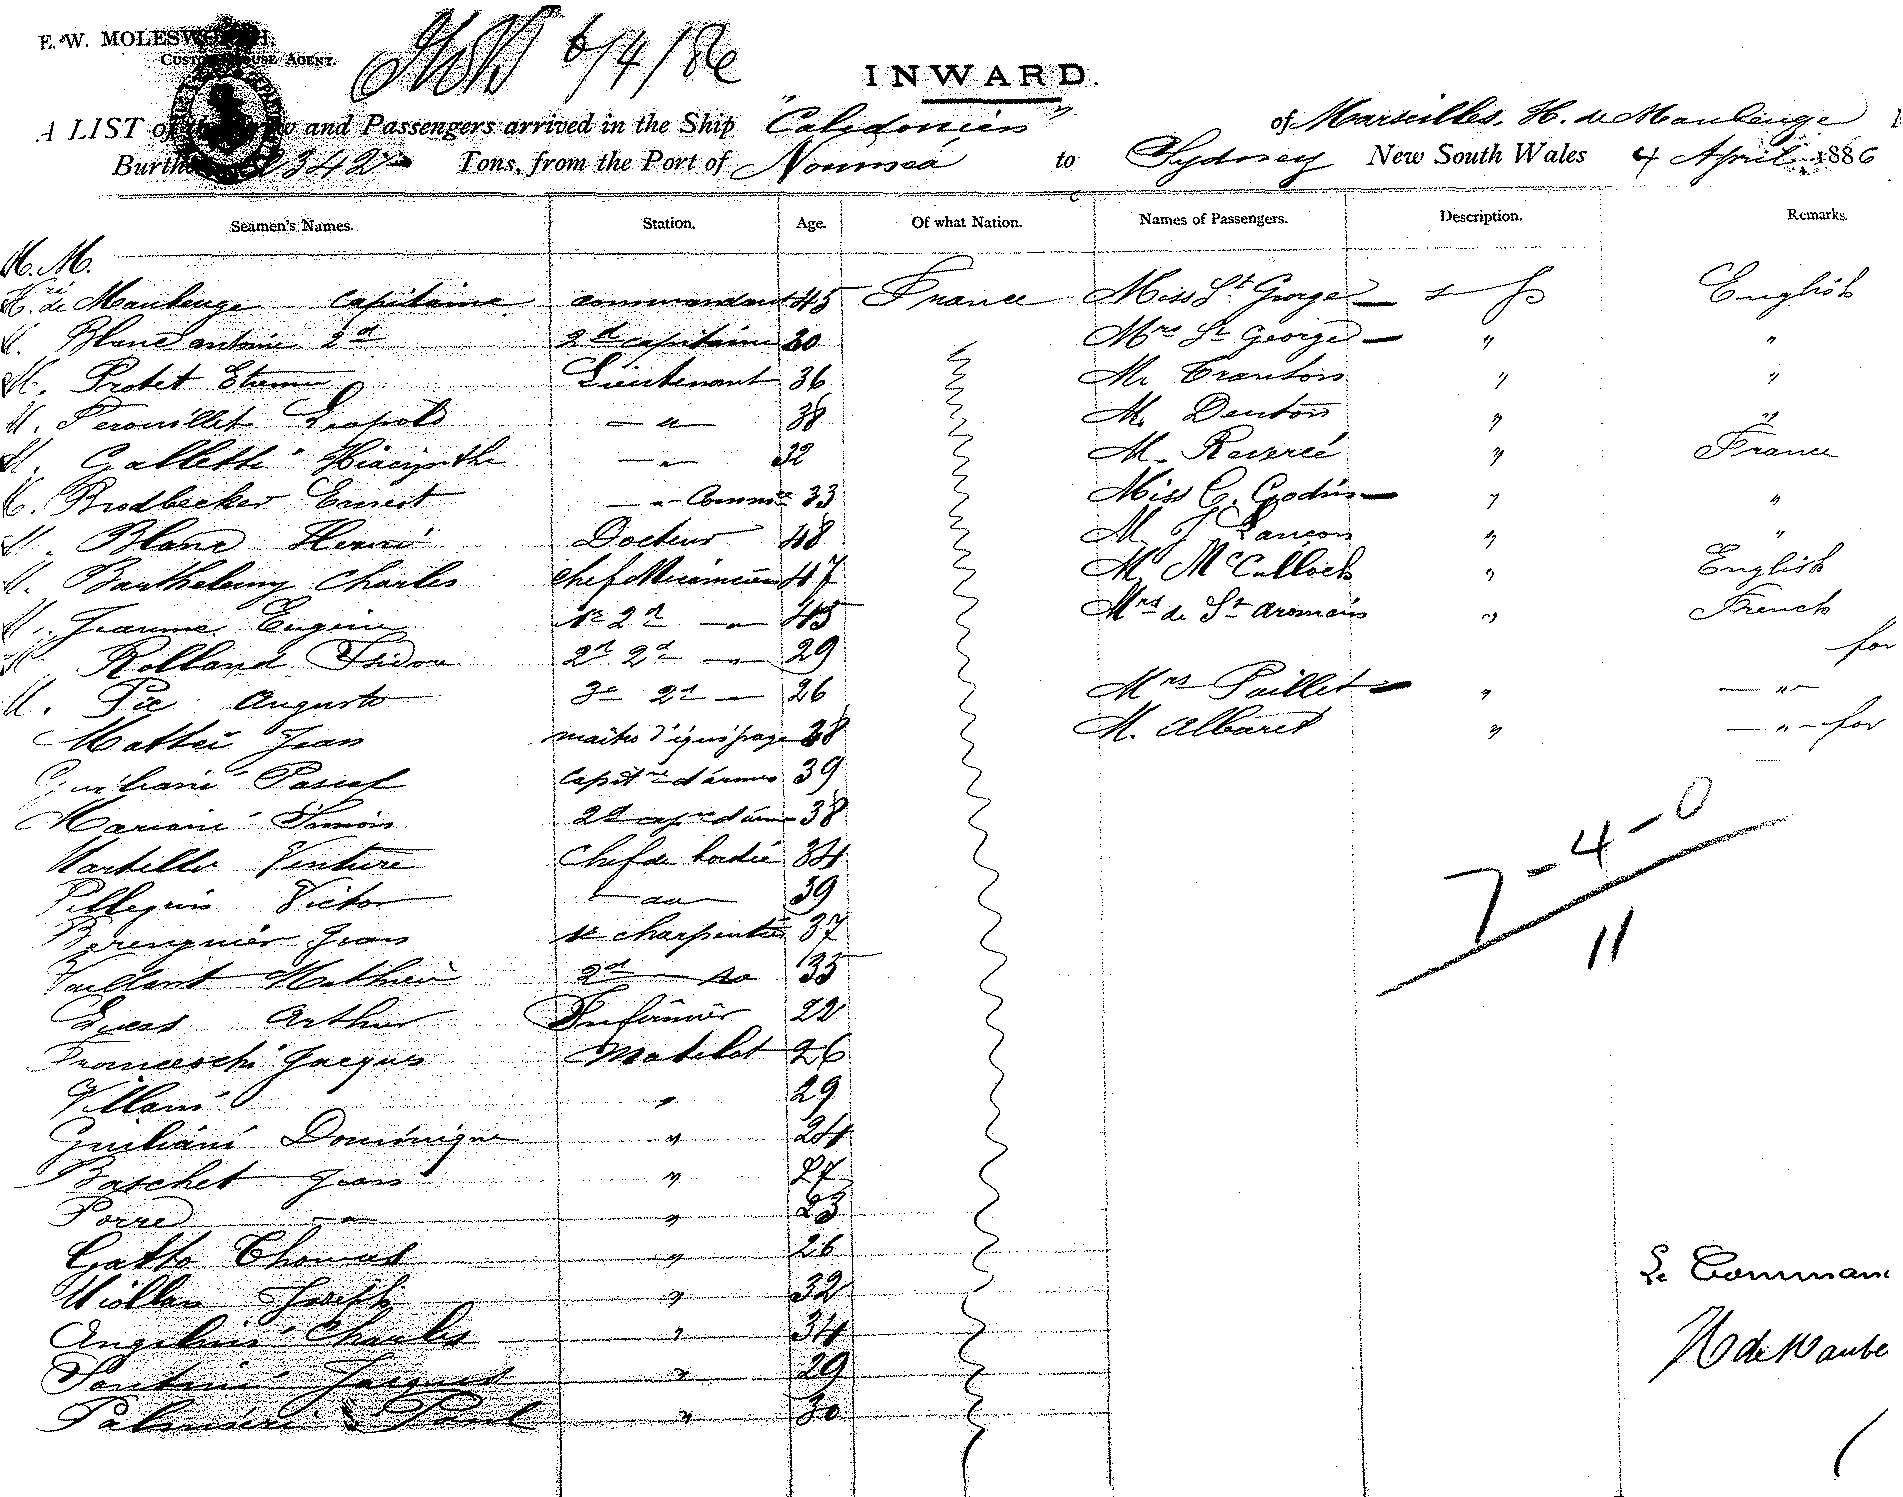 E. W. MOLESWORTH,
CUSTOM HOUSE AGENT.
6/4/86
INWARD.
A LIST of the Crew and Passengers arrived in the Ship "Calédonien" of Marseilles, H. de Maubeuge
Burthen 2342 Tons, from the Port of Noumea to Sydney New South Wales 4 April 1886
Seamen's Names. Station. Age. Of what Nation. Names of Passengers. Description. Remarks.
M.M.
de Maubeuge capitaine commandant 45 France Miss St George English
Blanc antoine 2d 2d capitaine 30 Mrs St George " "
M. Protet Etienne Lieutenant 36 Mr " "
M. Perouillet Leopold — " — 38 M. Denton " "
M. Galletti Hiacinthe — " — 32 M. " France
Brodbecker Ernest — " — 33 Miss C. Godin " "
M. Blanc Henri Docteur 48 M. J Lancon " "
M. Barthelemy Charles chef Mecanicien 47 M. McCulloch " English
M. Jeanne Eugene 2d — " — 45 Mrs de St " French
for
Rolland Isidore 2d 2d — " — 29
M. Pie Auguste 3e 2d — 26 Mrs Paillet " — " —
Mattei Jean maitre d'équipage 38 M. Albaret " — " — for
Giuliani Pascal capitne d'armes 39
Mariani Simon 2d capne d'armes 38
Martelli Venture Chef de bordée 34
Pellegrin Victor — " — 39
Berenguier Jean charpentier 37
Vaillant Mathieu 2d — do 35
Arthur Infirmier 22
Franceschi Jacques Matelot 26
Villani " 29
Giuliani Dominique " 24
Baschet Jean " 27
Porre — " — " 23
Gatto Thomas " 26
Miollan Joseph " 32
Angelini Charles " 34
Santini Jacques " 29
Palmieri Paul " 30
7-4-0
11
Le Comman
H de Maube